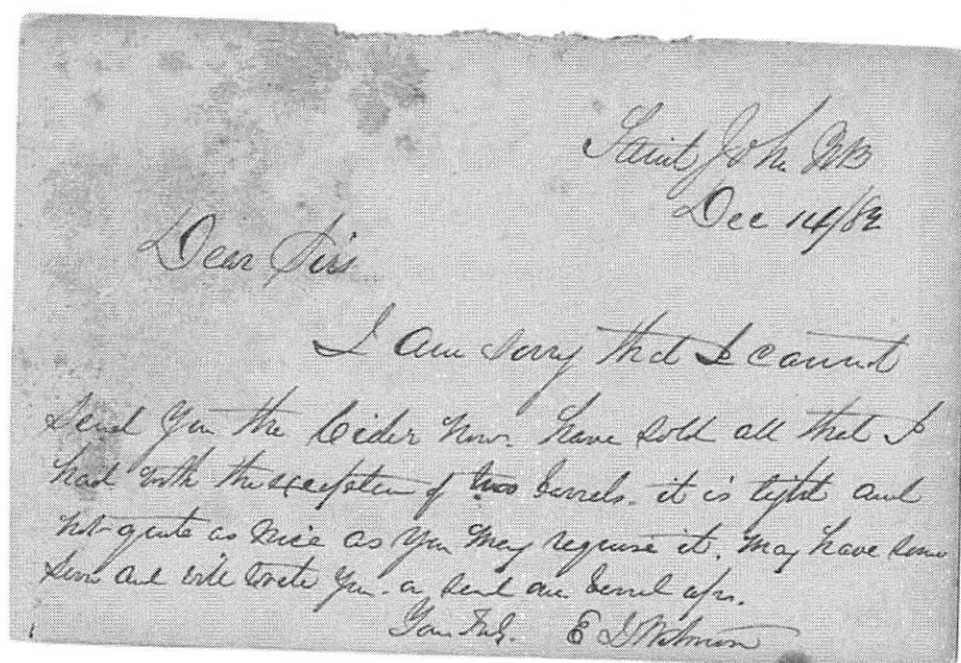 Saint John NB
Dec 14/82
Dear Sirs
I am sorry that I cannot
send you the Cider now. have sold all that I
had with the exception of two barrels. it is light and
not quite as nice as you may require it. may have some
soon and will write you. or send one barrel up.
Yours Truly. E